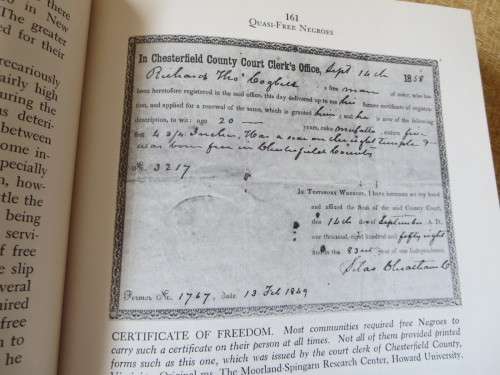 there
10 in New
The greater
ed for their
recariously
airly high
uring the
is deteri-
between
ome in-
specially
n, how-
ttle the
being
servi-
f free
e slip
everal
uired
free
n to
he
161
QUASI-FREE NEGROES
In Chesterfield County Court Clerk's Office, Sept 14th 1858
Richard Tho' a free man of color, who has
been heretofore registered in the said office, this day delivered up to me his former certificate of registra-
tion, and applied for a renewal of the same, which is granted him; and he is now of the following
description, to wit: age 20 years, color Mulatto, stature five
feet 4 3/4 Inches, Has a scar on the right temple &
was born free in Chesterfield County
No. 3217
IN TESTIMONY WHEREOF, I have hereunto set my hand
and affixed the Seal of the said County Court,
this 14th day of September A. D.,
one thousand, eight hundred and fifty eight
and in the 83rd year of our Independence.
Silas Cheatham C
Former No. 1767, date 13 Feb 1849
CERTIFICATE OF FREEDOM. Most communities required free Negroes to
carry such a certificate on their person at all times. Not all of them provided printed
forms such as this one, which was issued by the court clerk of Chesterfield County,
Original ms. The Moorland-Spingarn Research Center, Howard University.